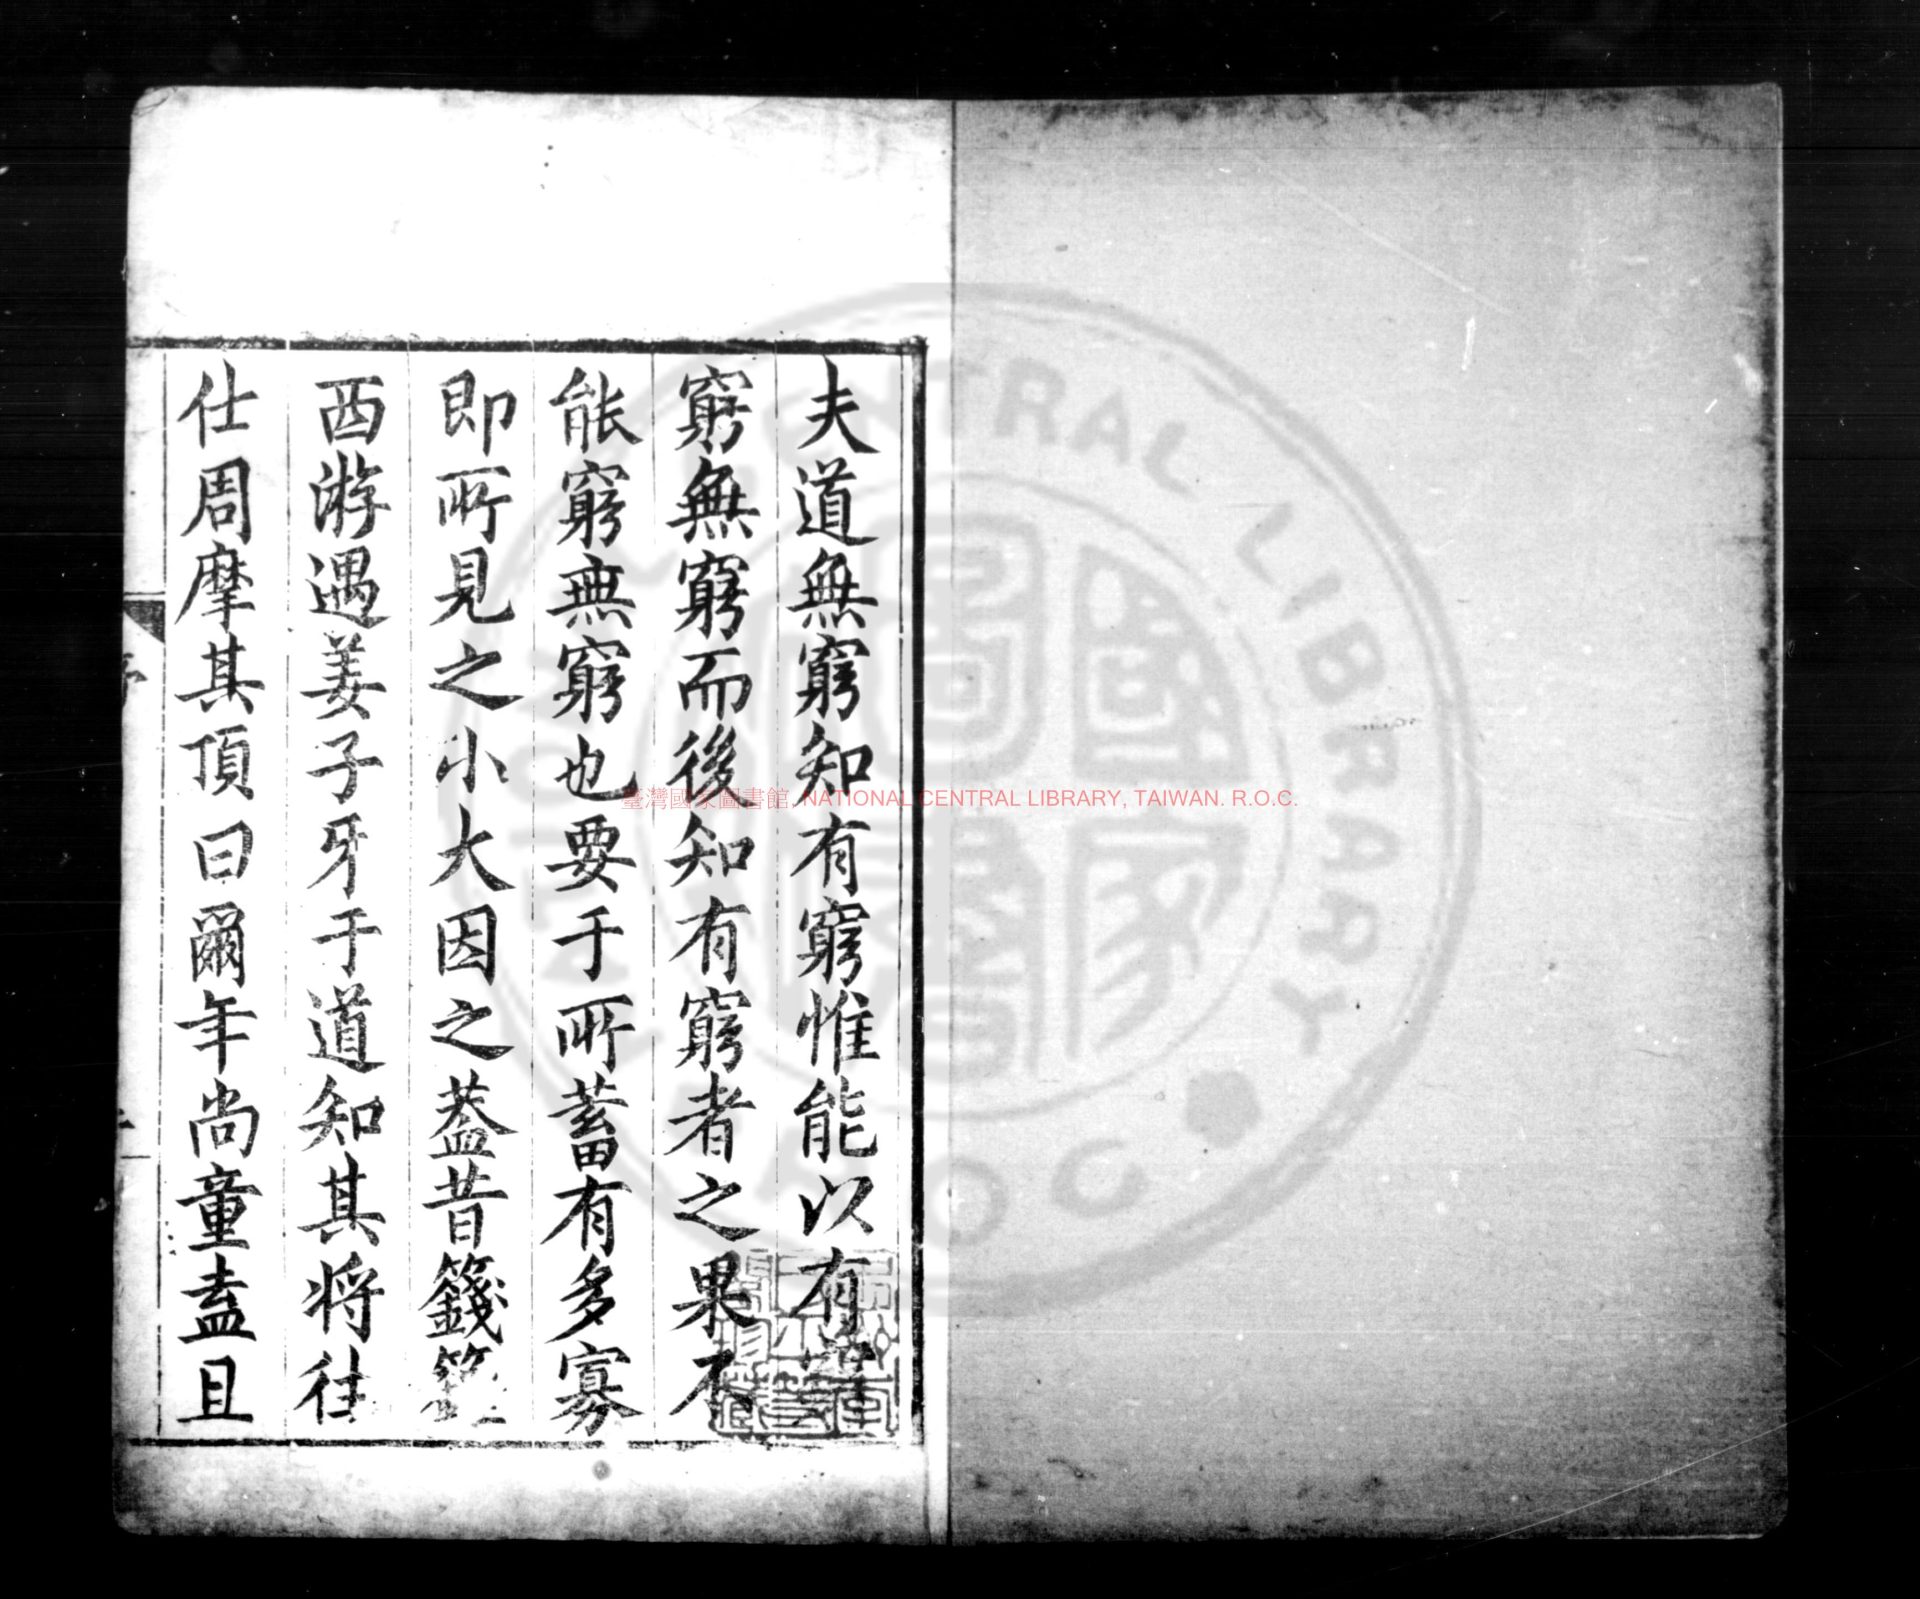 夫道無窮知有窮惟能以有
窮無窮而後知有窮者之果不
能窮無窮也要于所蓄有多寡
即所見之小大因之葢昔籛
西游遇姜子牙于道知其將往
仕周摩其頂曰爾年尚童盍且
序
臺灣國家圖書館, NATIONAL CENTRAL LIBRARY, TAIWAN. R.O.C.